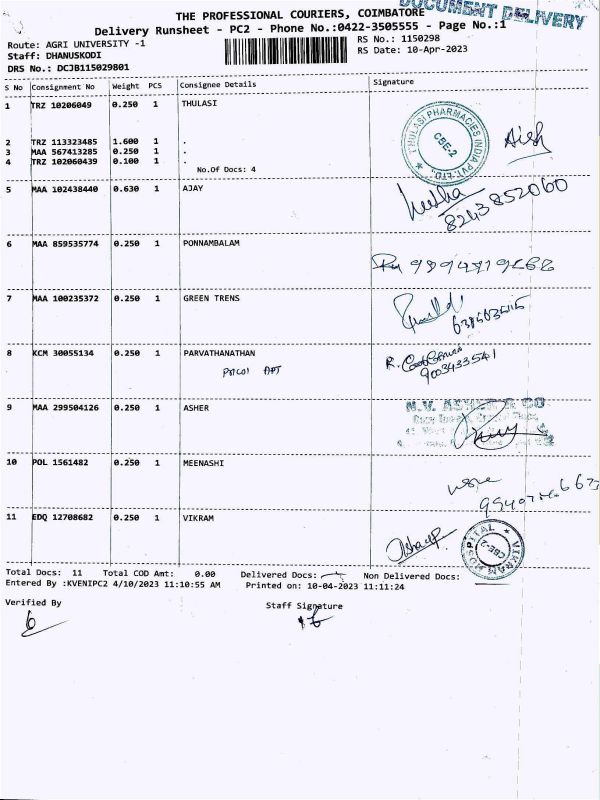 DOCUMENT DELIVERY
THE PROFESSIONAL COURIERS, COIMBATORE
Delivery Runsheet - PC2 - Phone No.:0422-3505555 - Page No.:1
Route: AGRI UNIVERSITY -1
RS No.: 1150298
Staff: DHANUSKODI
RS Date: 10-Apr-2023
DRS No.: DCJB115029801
S No Consignment No Weight PCS Consignee Details Signature
1 TRZ 10206049 0.250 1 THULASI
THULASI PHARMACIES INDIA PVT. LTD.
CBE-2
2 TRZ 113323485 1.600 1 .
3 MAA 567413285 0.250 1 .
4 TRZ 102060439 0.100 1 .
No.Of Docs: 4
5 MAA 102438440 0.630 1 AJAY
8243852060
6 MAA 859535774 0.250 1 PONNAMBALAM
7 MAA 100235372 0.250 1 GREEN TRENS
8 KCM 30055134 0.250 1 PARVATHANATHAN
APT
9003433541
9 MAA 299504126 0.250 1 ASHER
N.V. ASHER & CO
10 POL 1561482 0.250 1 MEENASHI
11 EDQ 12708682 0.250 1 VIKRAM
VIKRAM HOSPITAL
CBE-2
Total Docs: 11 Total COD Amt: 0.00 Delivered Docs: Non Delivered Docs:
Entered By :KVENIPC2 4/10/2023 11:10:55 AM Printed on: 10-04-2023 11:11:24
Verified By
Staff Signature